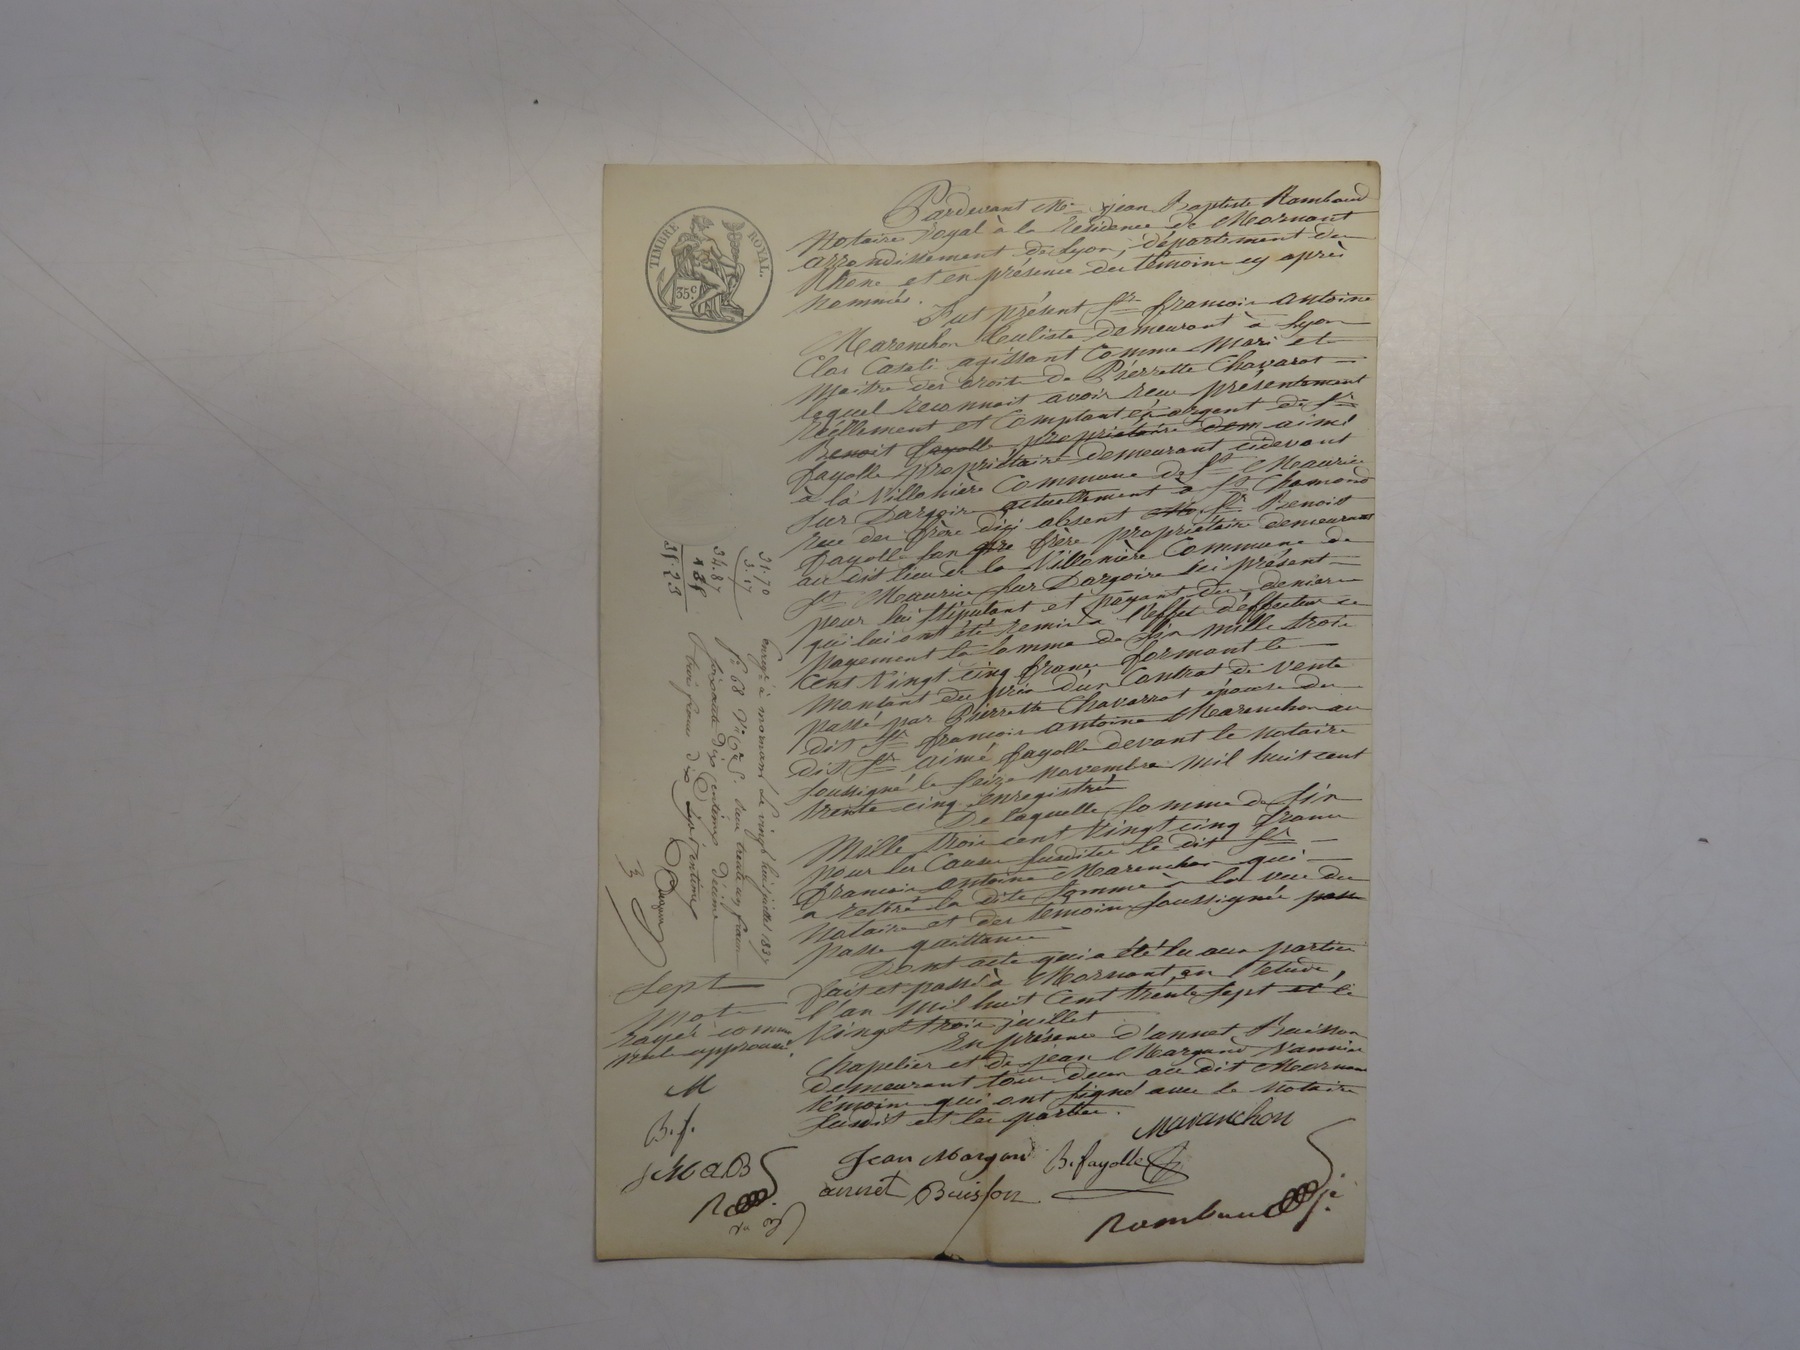 TIMBRE ROYAL.
35 c.
Pardevant Me jean Baptiste Rambaud
Notaire Royal à la Résidence de Mornant
arrondissement de Lyon, département du
Rhone et en présence des témoins cy après
nommés.
fut présent Sr francois antoine
Marenchon demeurant à Lyon
Clos Casati agissant comme Mari et
Maitre des droits de Pierrette Chavarot
lequel reconnait avoir recu présentement
réellement et Comptant en argent de Sr
Benoit fayolle propriétaire dem aimé
fayolle propriétaire demeurant cidevant
à la Villonière Commune de St Maurice
sur Dargoire actuellement à St Chamond
rue des frère absent Sr Benoit
fayolle son frère propriétaire demeurant
au dit lieu de la Villonière Commune de
St Maurice sur Dargoire ici présent
pour lui stipulant et payant des deniers
qui lui ont été remis à l'effet d'effectuer ce
payement la somme de six mille trois
cent vingt cinq francs formant le
montant du prix d'un Contrat de vente
passé par Pierrette Chavarrot épouse du
dit Sr francois antoine Marenchon au
dit Sr aimé fayolle devant le notaire
soussigné le seize novembre mil huit cent
trente cinq enregistré
De laquelle somme de six
Mille trois cent vingt cinq francs
pour les Causes susdites le dit Sr
francois antoine Marenchon qui
a retiré la dite somme à la vue du
notaire et des témoins soussignés passe
passe quittance
Dont acte qui a été lu aux parties
fait et passé à Mornant, en l'étude,
l'an mil huit cent trente sept et le
vingt trois juillet
En présence d'annet Buisson
Chapelier et de jean Margand Vannier
demeurant tous deux au dit Mornant
témoins qui ont signé avec le notaire
susdit et les parties.
Maranchon
Jean Margand
B. fayolle
annet Buisson
Rambaud
31.70
3.17
34.87
enregt. à mornant le vingt huit juillet 1837
fo 68 Vo Ce 5. recu trente un francs
soixante dix centimes décime
trois francs dix sept centimes
3
Sept
mots
rayés comme
nuls approuvés.
M
B. f.
j M a B